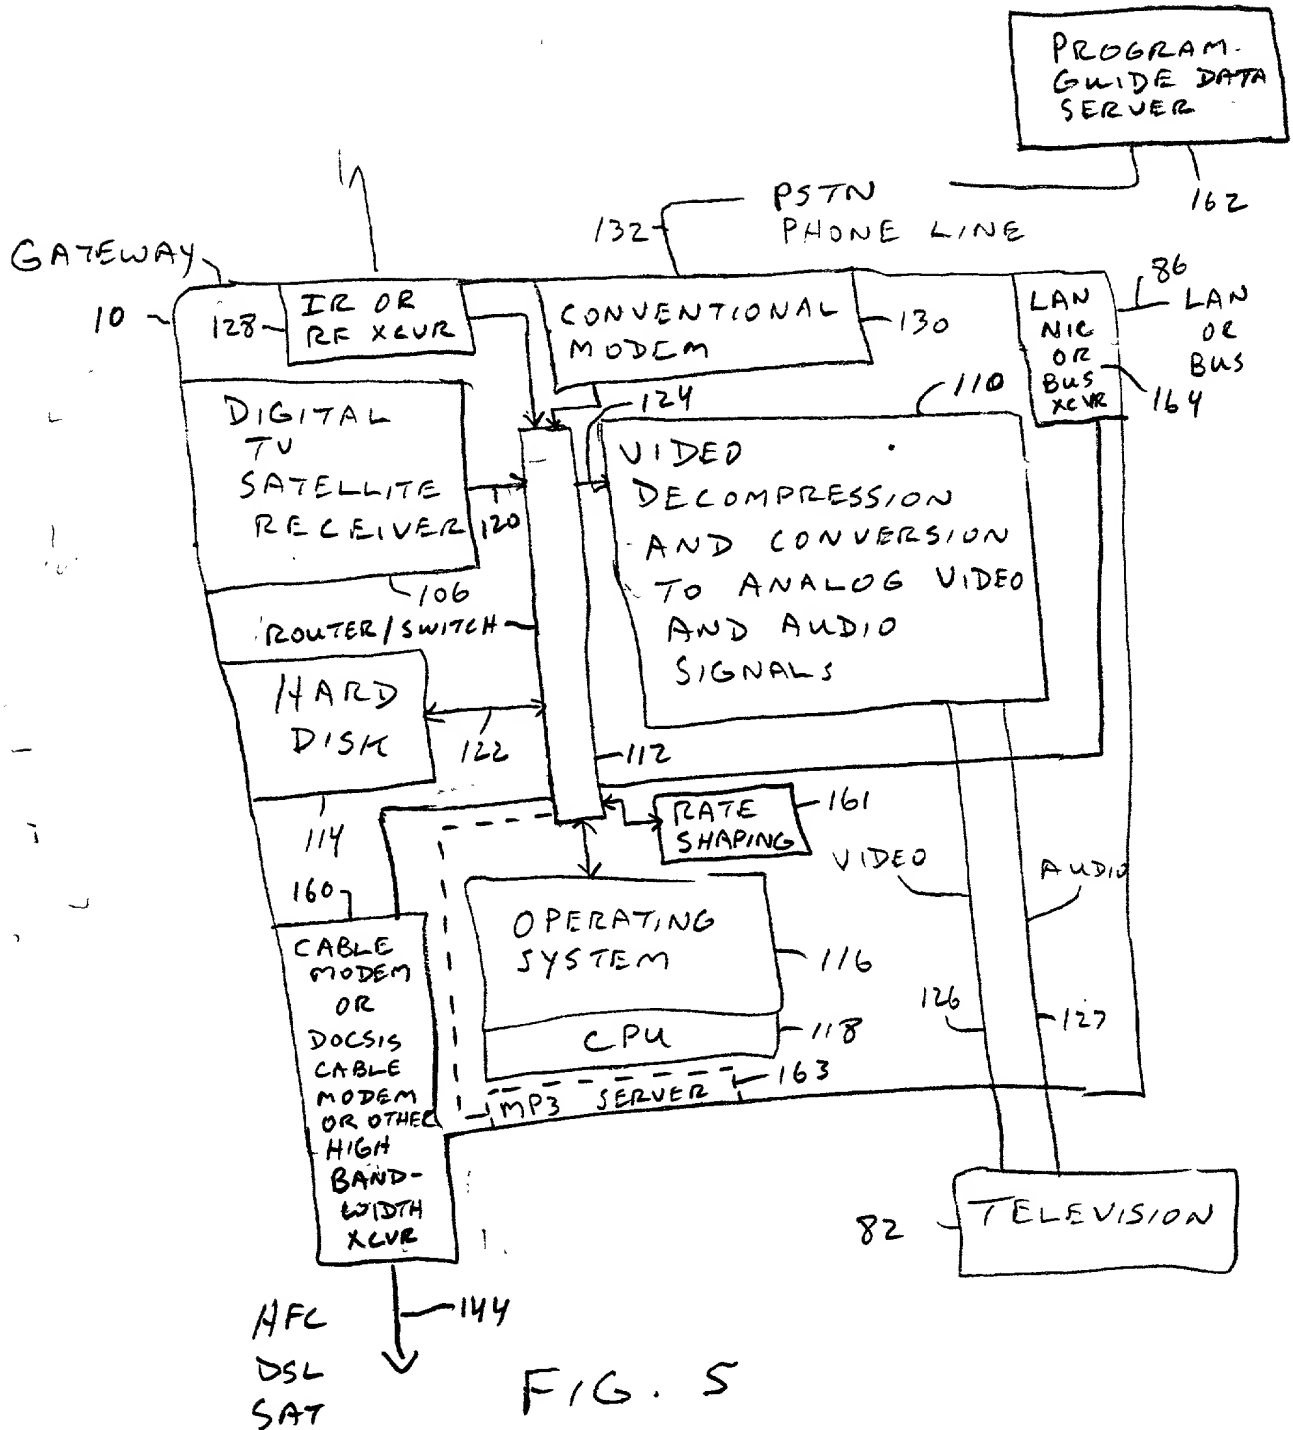 PROGRAM.
GUIDE DATA
SERVER
162
PSTN
PHONE LINE
132
GATEWAY
10
128
IR OR
RF XCVR
CONVENTIONAL
MODEM
130
LAN
NIC
OR
BUS
XCVR
86
LAN
OR
BUS
164
124
110
DIGITAL
TV
SATELLITE
RECEIVER
120
106
VIDEO
DECOMPRESSION
AND CONVERSION
TO ANALOG VIDEO
AND AUDIO
SIGNALS
ROUTER/SWITCH
HARD
DISK
122
112
114
RATE
SHAPING
161
VIDEO
AUDIO
160
CABLE
MODEM
OR
DOCSIS
CABLE
MODEM
OR OTHER
HIGH
BAND-
WIDTH
XCVR
OPERATING
SYSTEM
116
CPU
118
MP3 SERVER
163
126
127
TELEVISION
82
144
HFC
DSL
SAT
FIG. 5